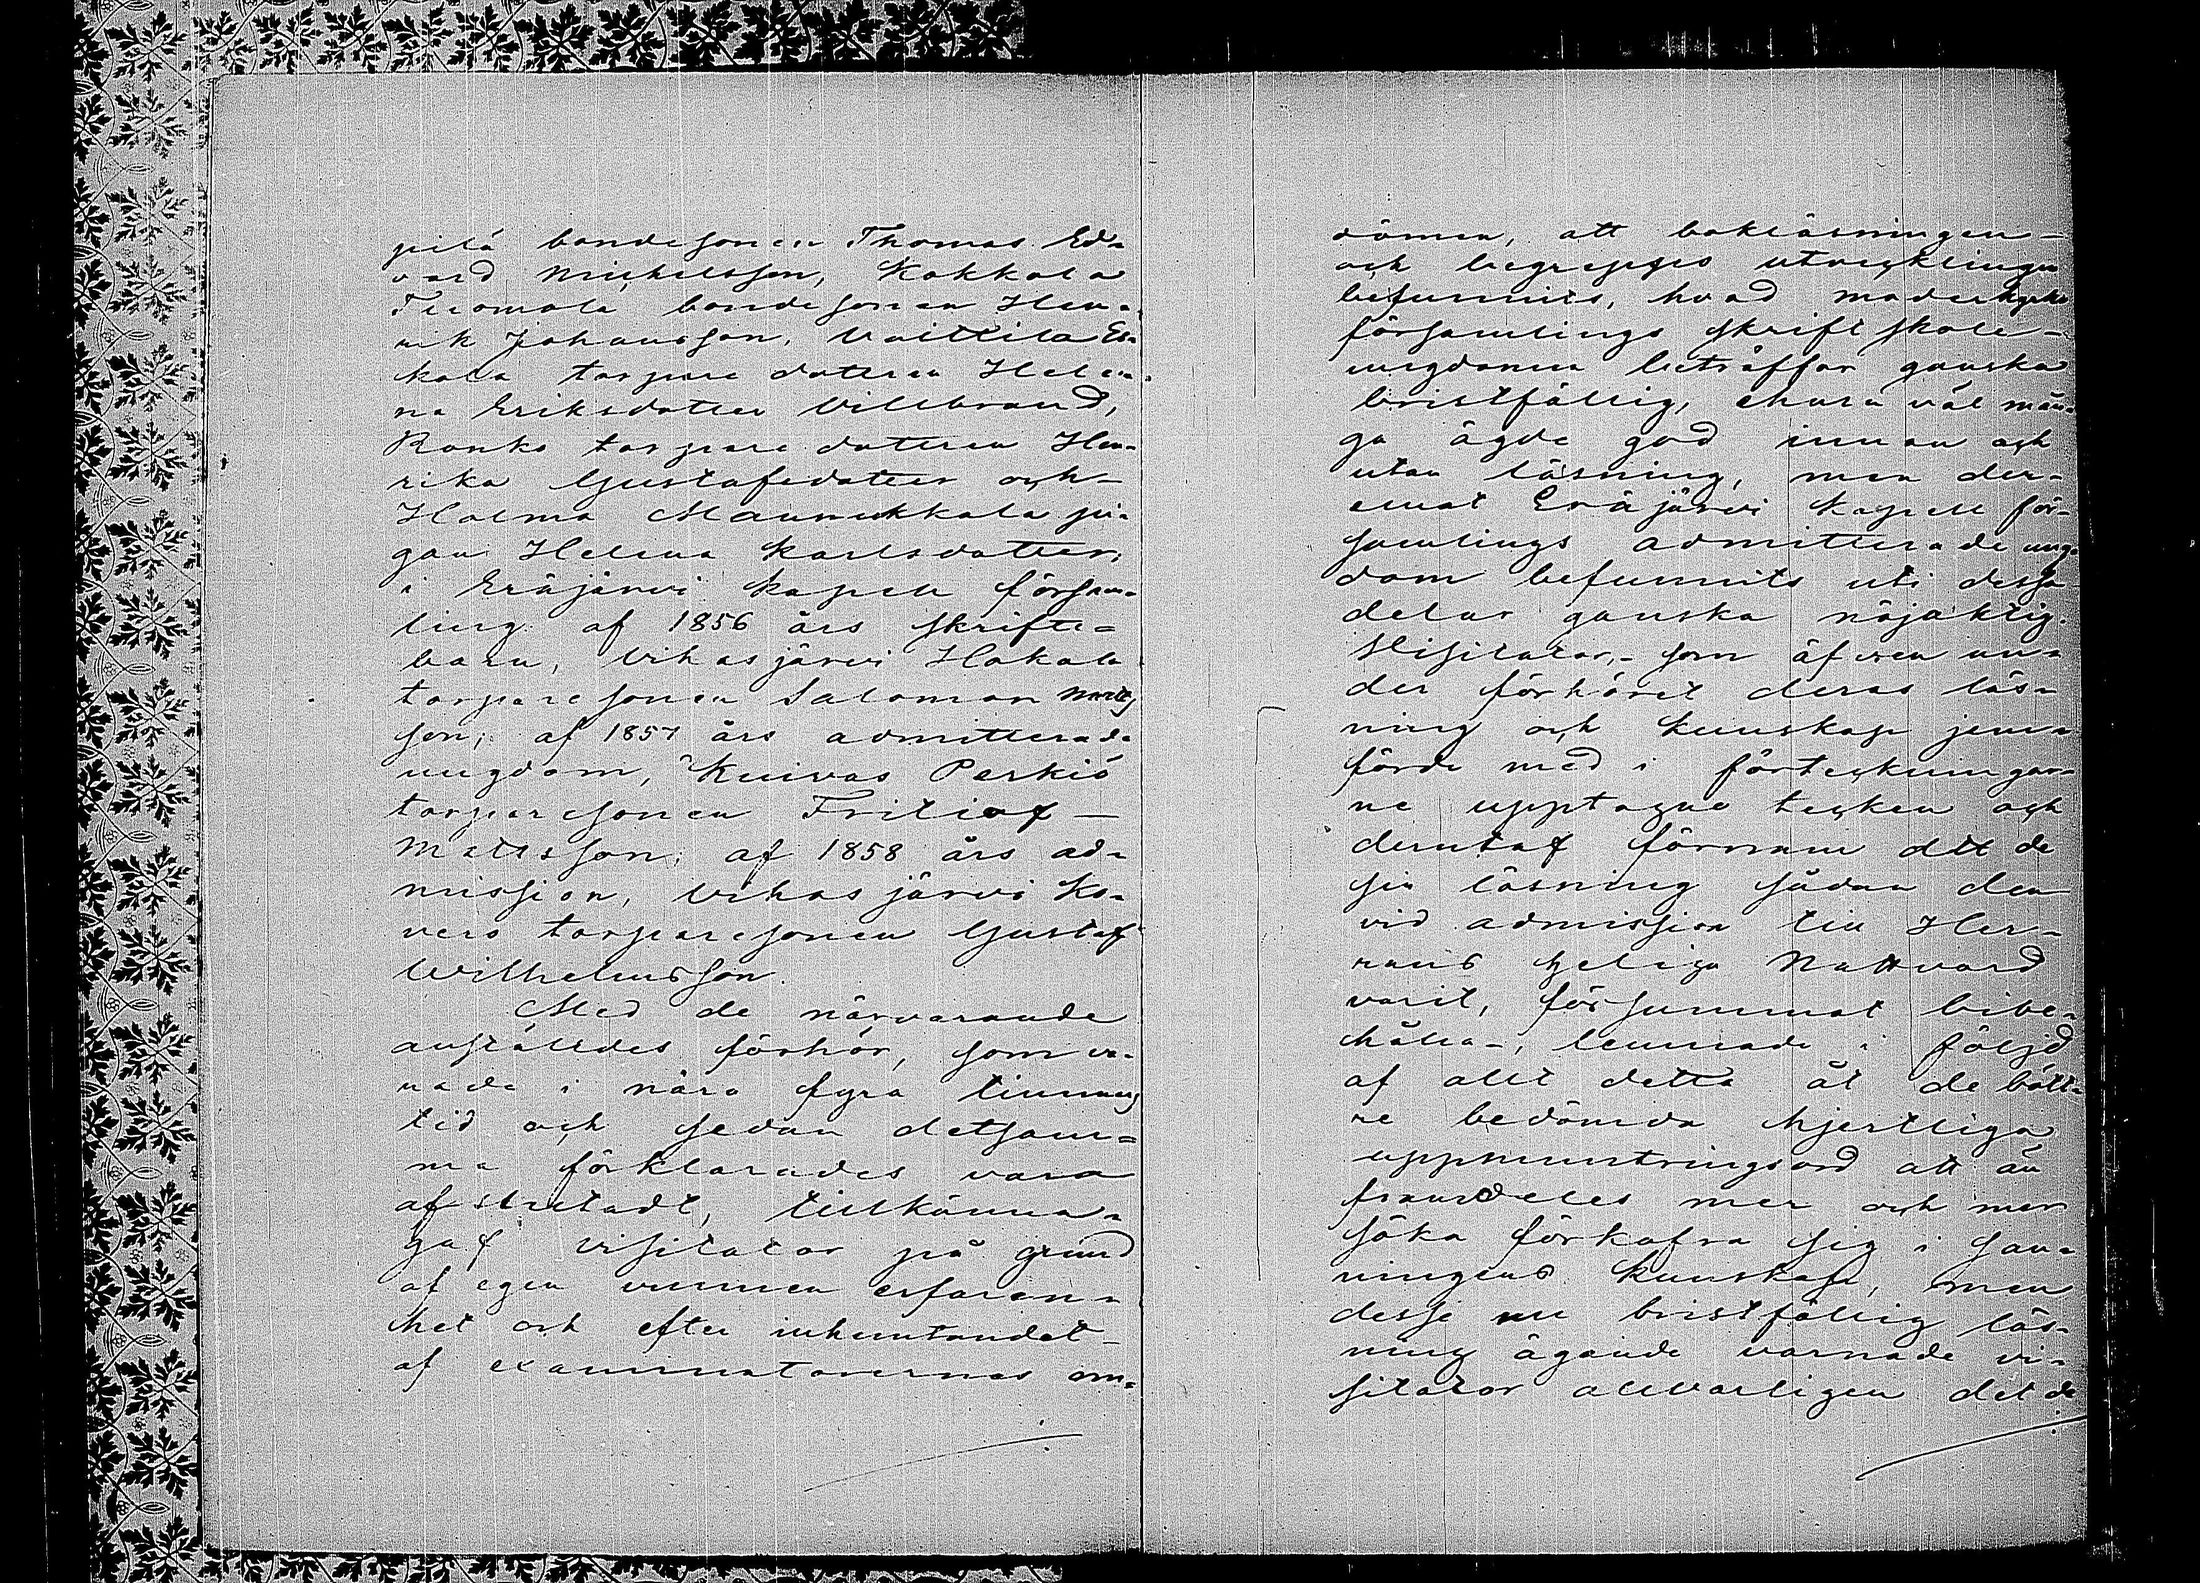 pilä bondesonen Thomas Ed-
vard Michelsson, Kokkola
Tuomola bondesonen Hen-
rik Johansson, Vaittila Es-
kola torpare dottren Hele-
na Eriksdotter Villbrand,
Ronko torpare dottren Hen-
rika Gustafsdotter och
Holma Maunukkala pi-
gan Helena Karlsdotter;
i Eräjärvi kapell församl-
ling af 1856 års skrifte-
barn, Vihasjärvi Hokala
torparesonen Salomon Matts
son; af 1857 års admitterade
ungdom, Kuivas Perkiö
torparesonen Fritiof
Mattsson; af 1858 års ad-
mission, Vihasjärvi Ko-
vero torparesonen Gustaf
Wilhelmsson.
Med de närvarande
anställdes förhör, som va-
rade i nära fyra timmars
tid och sedan detsam-
ma förklarades vara
afslutadt, tillkänna-
gaf visitator på grund
af egen vunnen erfaren-
het och efter inhemtandet
af examinatorernas om-
dömen, att bokläsningen
och begreppets utveckling
befunnits, hvad moderkyrko
församlings skriftskole-
ungdomen beträffar ganska
bristfällig, ehuru väl mån-
ga ägde god innan och
utan läsning, men der-
emot Eräjärvi kapell för-
samlings admitterade ung-
dom befunnits uti dessa
delar ganska nöjaktig.
Visitator, som äfven un-
der förhöret deras läs-
ning och kunskap jem-
förde med i förteckningar-
ne upptagne tecken och
derutaf förnam att de
sin läsning sådan den
vid admission till Her-
rans heliga Nattvard
varit, försummat bibe-
hålla, lemnade i följd
af allt detta åt de bätt-
re bedömda hjertliga
uppmuntringsord att än
framdeles mer och mer
söka förkofra sig i san-
ningens kunskap, men
desse nu bristfällig läs-
ning ägande varnade vi-
sitator allvarligen det de